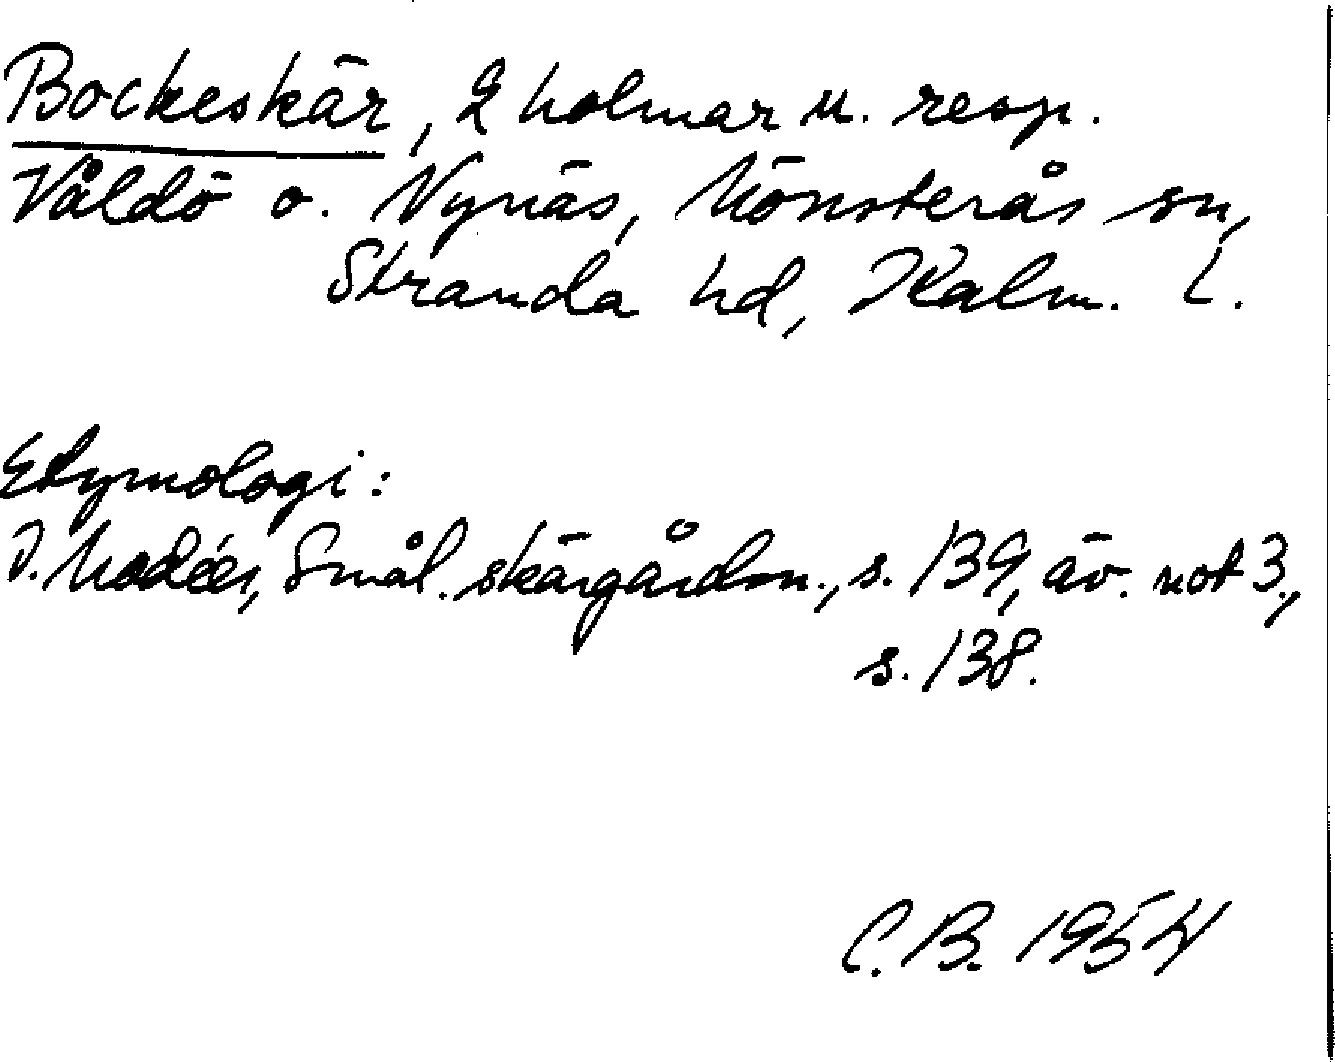 Bockeskär, 2 holmar u. resp.
Våldö o. Nynäs, Mönsterås sn,
Stranda hd, Kalm. L.
Etymologi:
I. Modéer, Smål. skärgårdsn., s. 139, äv. not 3.,
s. 138.
C.B. 1954